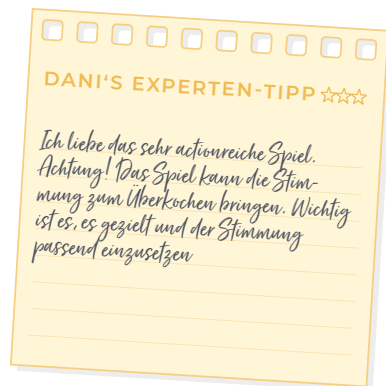 DANI‘S EXPERTEN-TIPP
Ich liebe das sehr actionreiche Spiel.
Achtung! Das Spiel kann die Stim-
mung zum Überkochen bringen. Wichtig
ist es, es gezielt und der Stimmung
passend einzusetzen